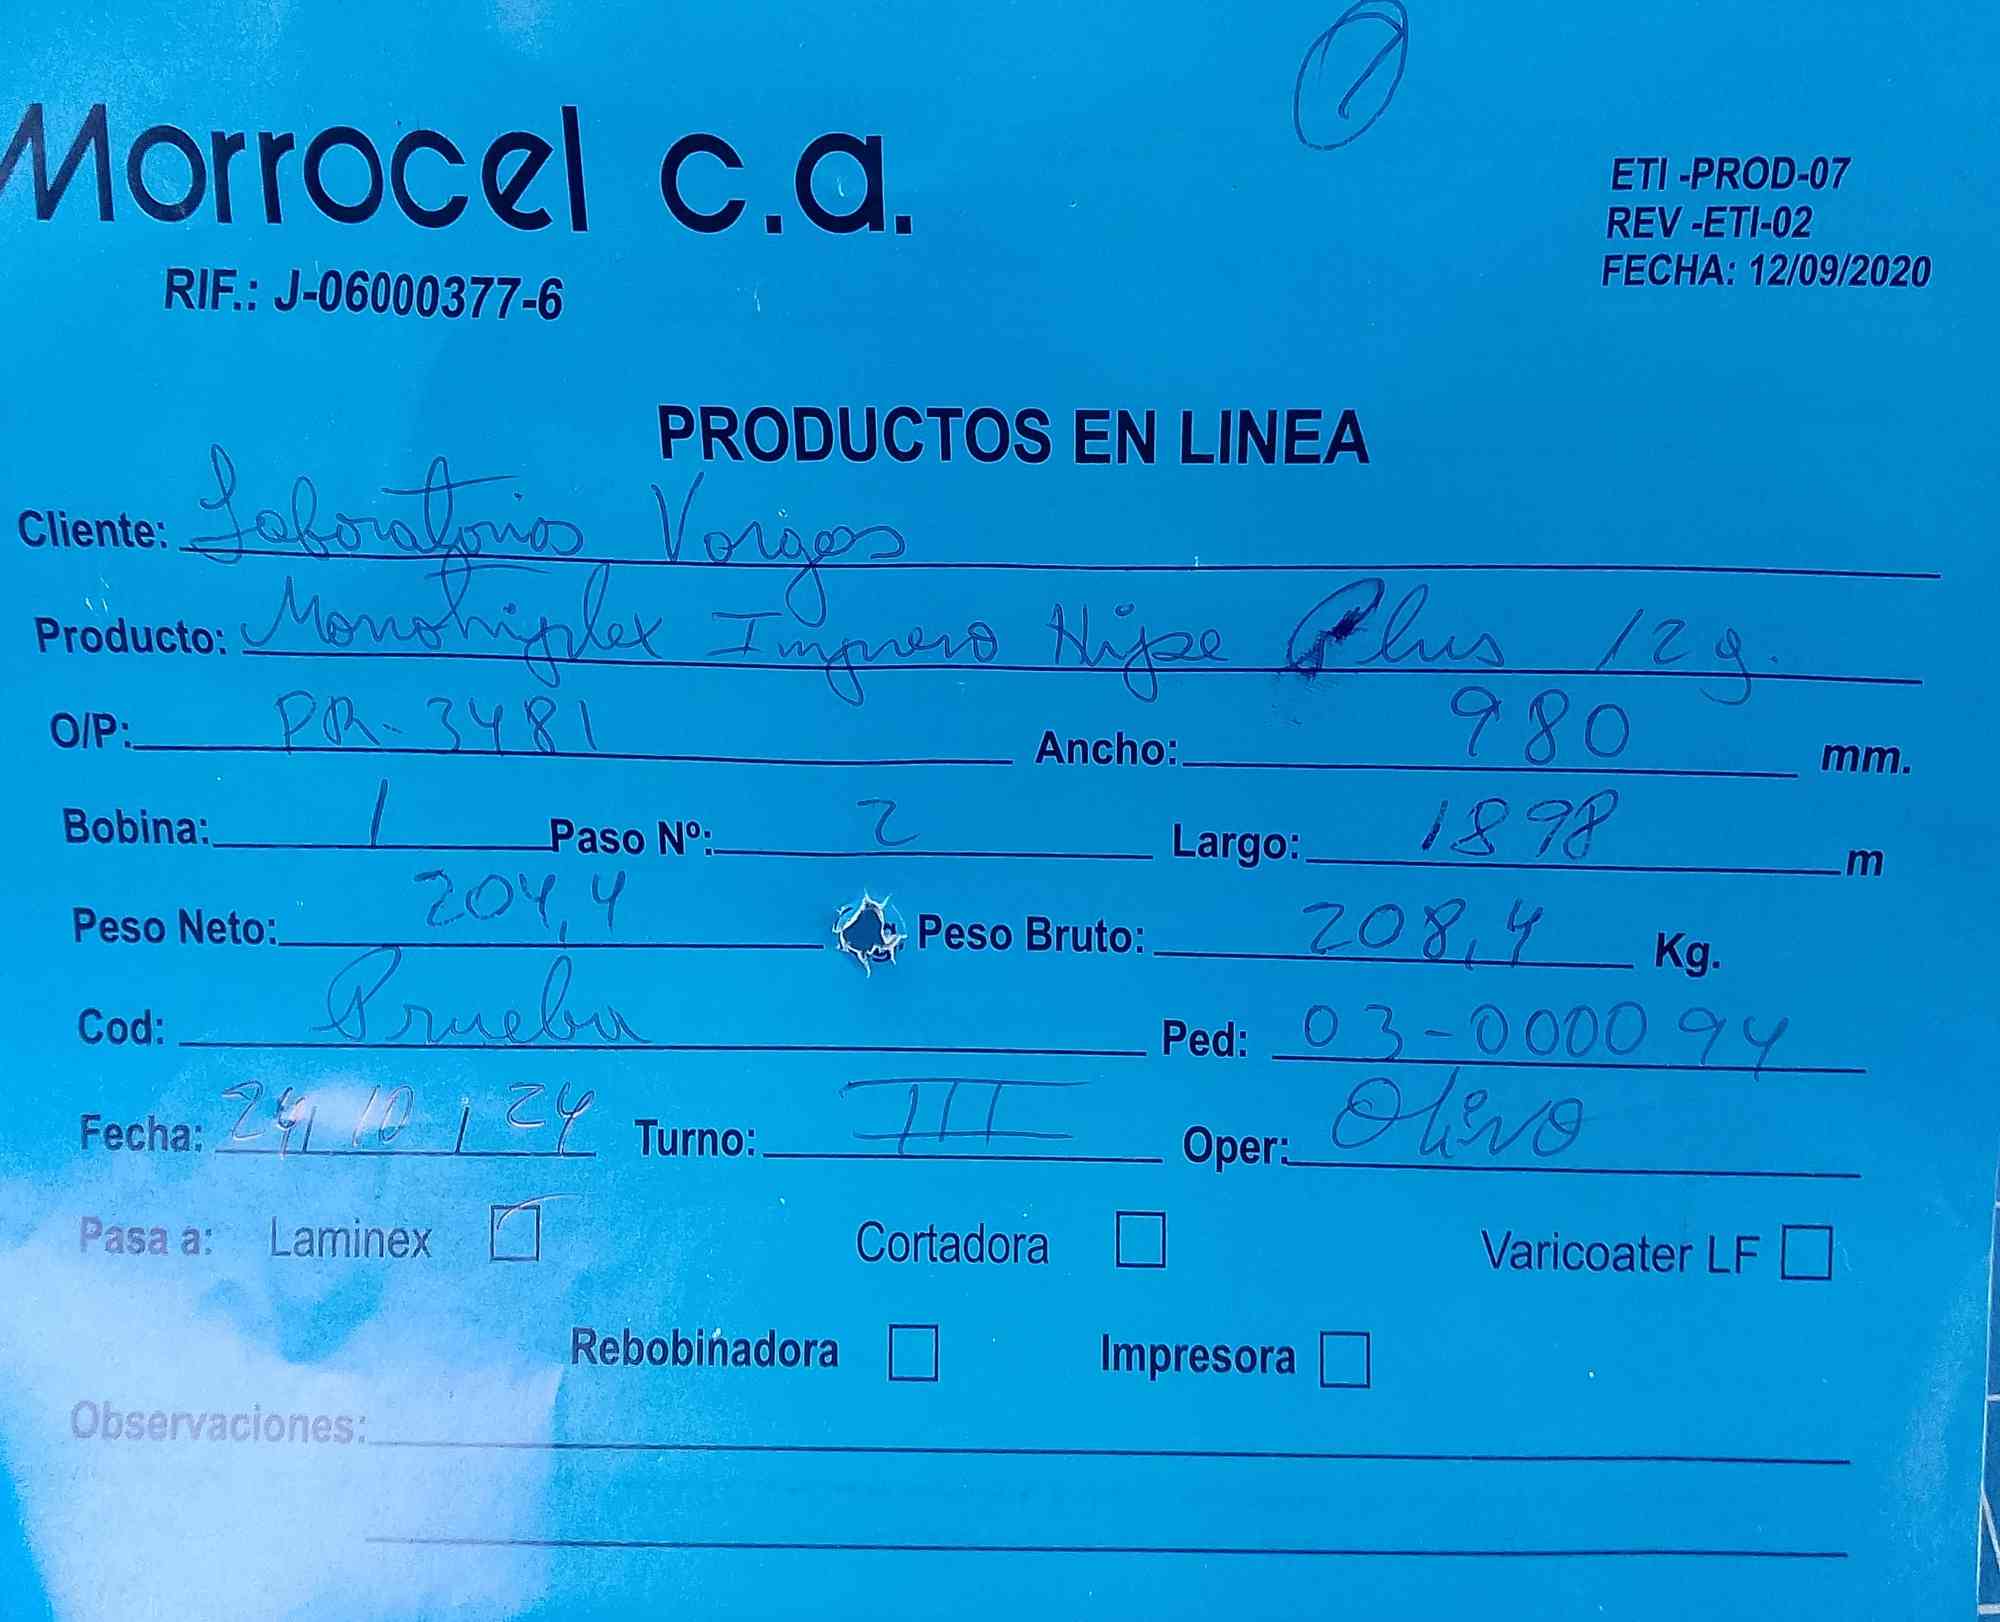 Morrocel c.a.
RIF.: J-06000377-6
ETI -PROD-07
REV -ETI-02
FECHA: 12/09/2020
PRODUCTOS EN LINEA
Cliente: Laboratorios Vargas
Producto: Monotriplex Impreso Hipe Plus 12 g.
O/P: PR-3481 Ancho: 980 mm.
Bobina: 1 Paso Nº: 2 Largo: 1898 m
Peso Neto: 204,4 Peso Bruto: 208,4 Kg.
Cod: Prueba Ped: 03-0000 94
Fecha: 24/10/24 Turno: III Oper: Olivo
Pasa a: Laminex Cortadora Varicoater LF
Rebobinadora Impresora
Observaciones: